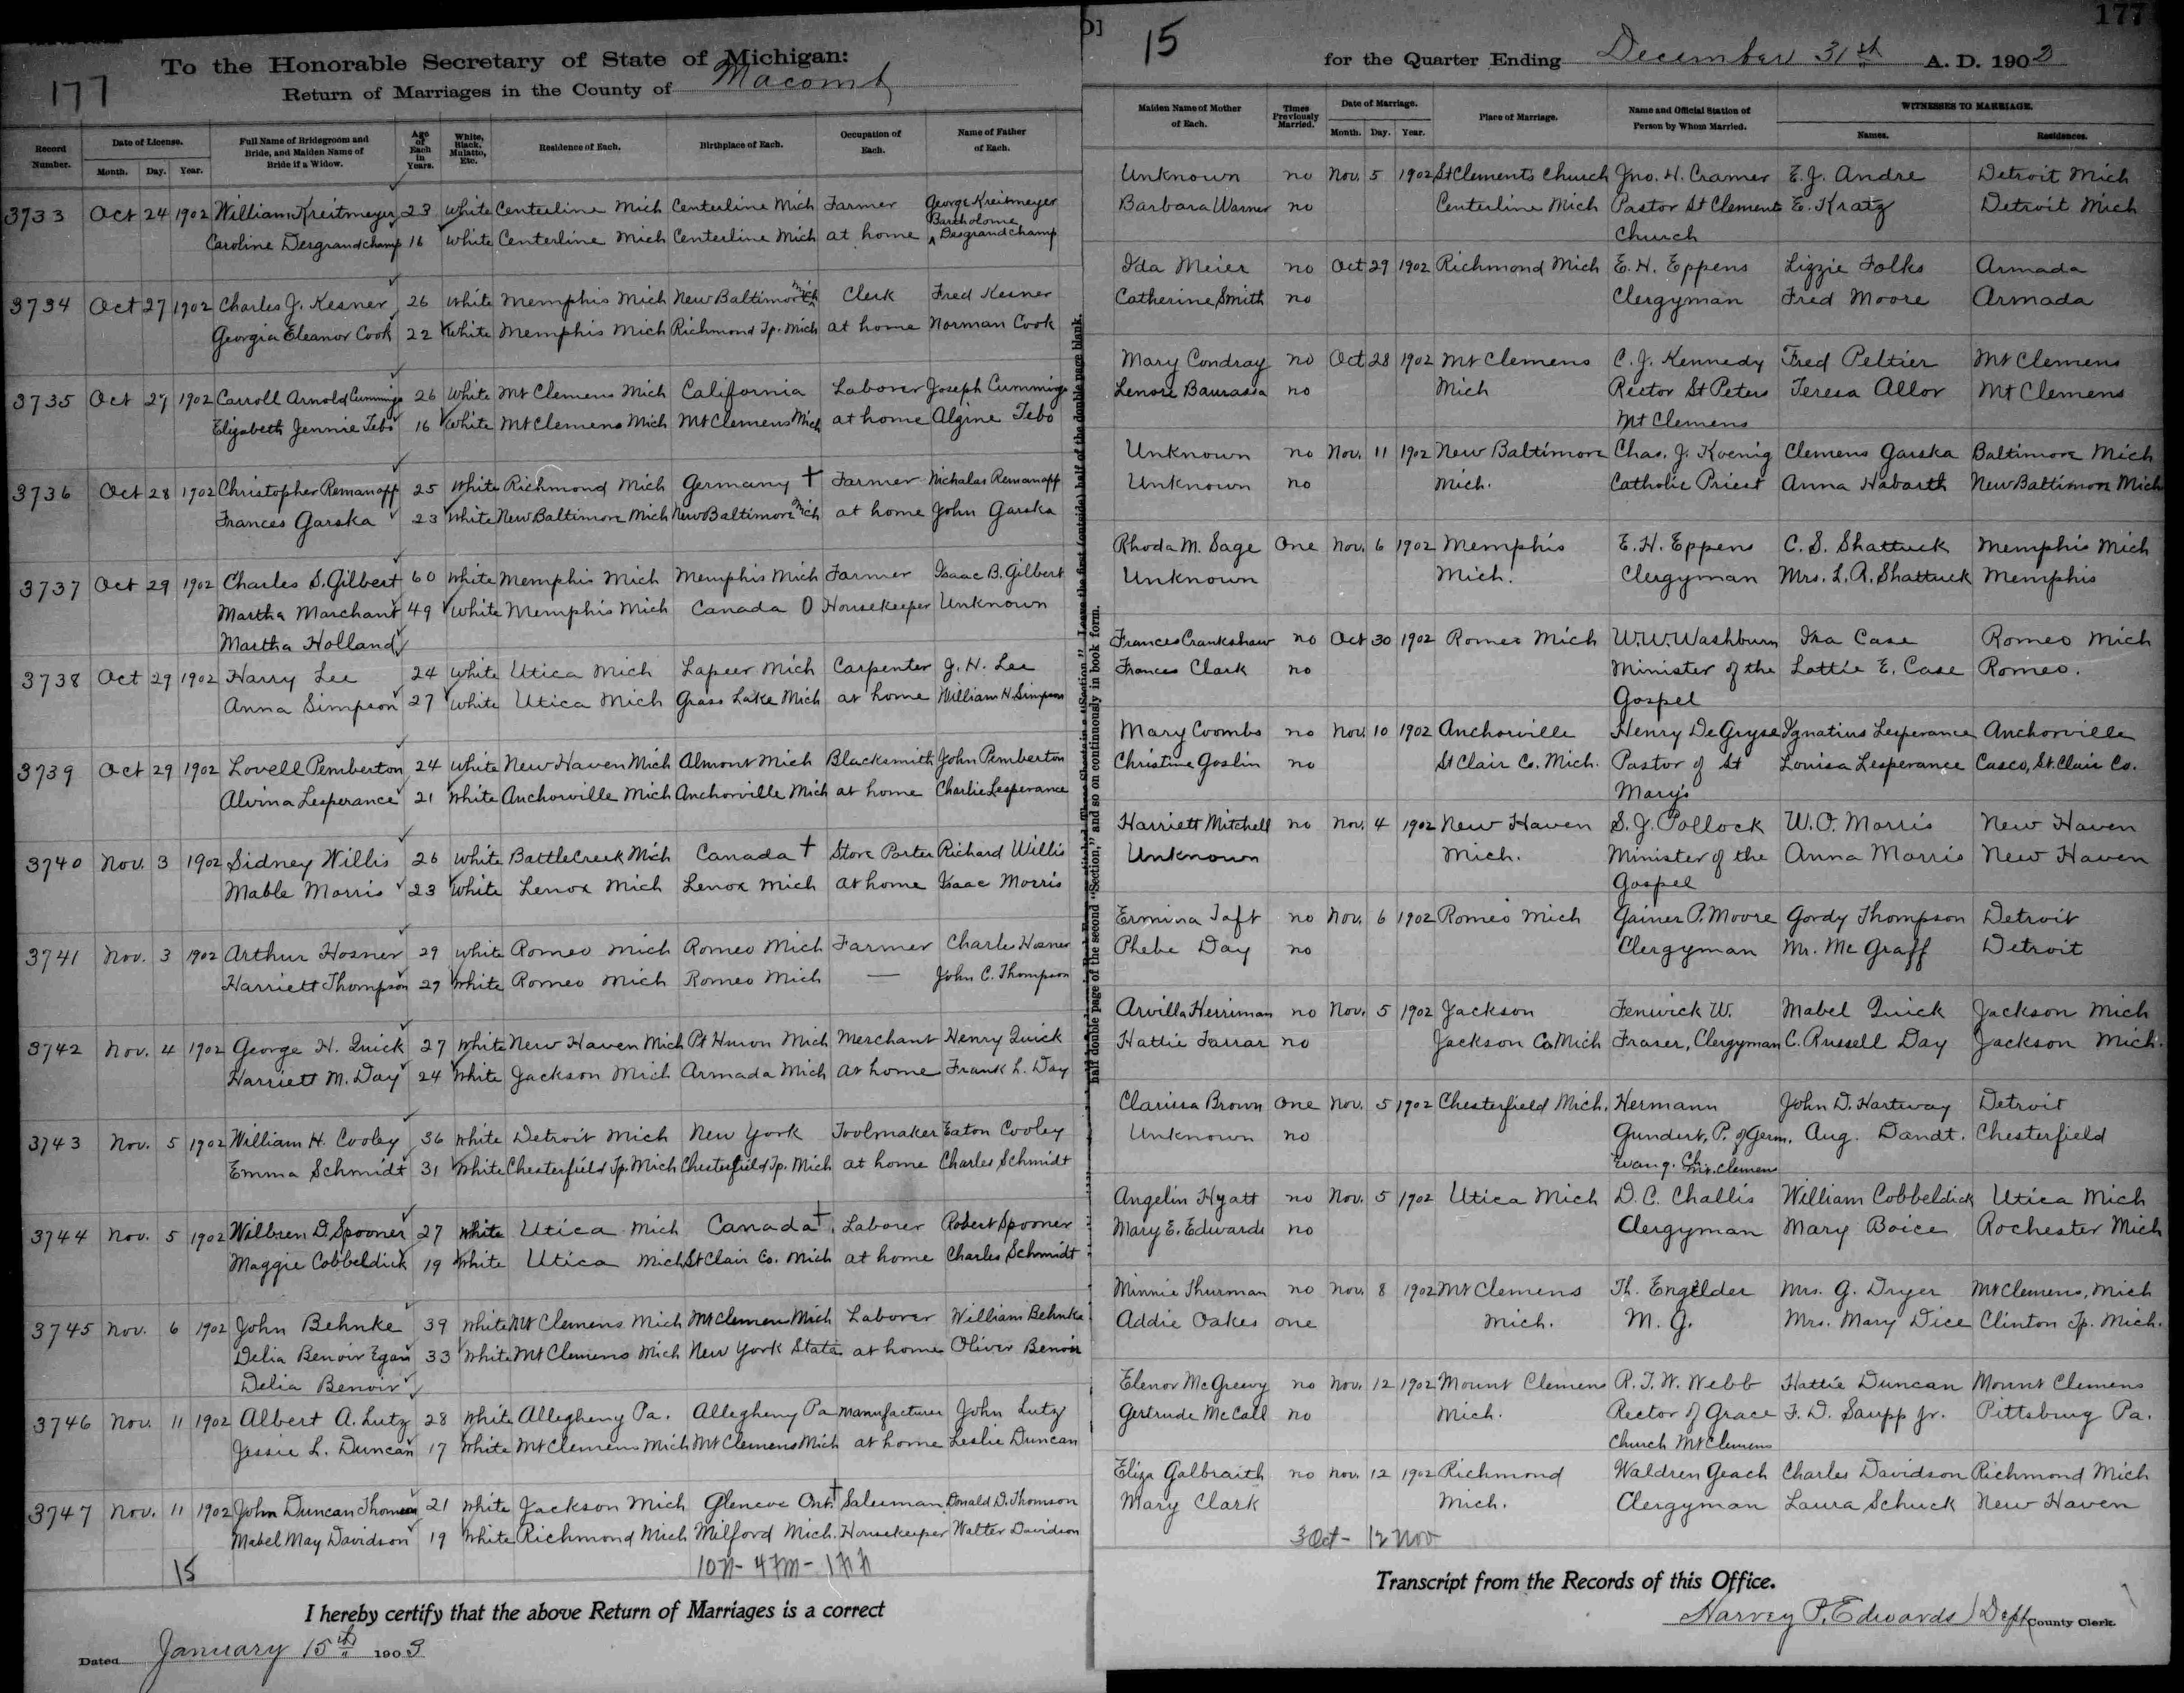 177
To the Honorable Secretary of State of Michigan:
Return of Marriages in the County of Macomb
Record Number. Date of License. Month. Day. Year. Full Name of Bridegroom and Bride, and Maiden Name of Bride if a Widow. Age of Each in Years. White, Black, Mulatto, Etc. Residence of Each. Birthplace of Each. Occupation of Each. Name of Father of Each.
3733 Oct 24 1902 William Kreitmeyer 23 White Centerline Mich Centerline Mich Farmer George Kreitmeyer
Caroline Desgrandchamp 16 White Centerline Mich Centerline Mich at home Bartholome Desgrandchamp
3734 Oct 27 1902 Charles J. Kesner 26 White Memphis Mich New Baltimore Mich Clerk Fred Kesner
Georgia Eleanor Cook 22 White Memphis Mich Richmond Tp. Mich at home Norman Cook
3735 Oct 27 1902 Carroll Arnold Cummings 26 White Mt Clemens Mich California Laborer Joseph Cummings
Elizabeth Jennie Tebo 16 White Mt Clemens Mich Mt Clemens Mich at home Algine Tebo
3736 Oct 28 1902 Christopher Remanoff 25 White Richmond Mich Germany † Farmer Nicholas Remanoff
Frances Garska 23 White New Baltimore Mich New Baltimore Mich at home John Garska
3737 Oct 29 1902 Charles S. Gilbert 60 White Memphis Mich Memphis Mich Farmer Isaac B. Gilbert
Martha Marchant 49 White Memphis Mich Canada 0 Housekeeper Unknown
Martha Holland
3738 Oct 29 1902 Harry Lee 24 White Utica Mich Lapeer Mich Carpenter J. H. Lee
Anna Simpson 27 White Utica Mich Grass Lake Mich at home William H. Simpson
3739 Oct 29 1902 Lovell Pemberton 24 White New Haven Mich Almont Mich Blacksmith John Pemberton
Alvina Lesperance 21 White Anchorville Mich Anchorville Mich at home Charlie Lesperance
3740 Nov. 3 1902 Sidney Willis 26 White Battle Creek Mich Canada † Store Porter Richard Willis
Mable Morris 23 White Lenox Mich Lenox Mich at home Isaac Morris
3741 Nov. 3 1902 Arthur Hosner 29 White Romeo Mich Romeo Mich Farmer Charles Hosner
Harriett Thompson 29 White Romeo Mich Romeo Mich — John C. Thompson
3742 Nov. 4 1902 George H. Quick 27 White New Haven Mich Pt Huron Mich Merchant Henry Quick
Harriett M. Day 24 White Jackson Mich Armada Mich at home Frank L. Day
3743 Nov. 5 1902 William H. Cooley 36 White Detroit Mich New York Toolmaker Eaton Cooley
Emma Schmidt 31 White Chesterfield Tp. Mich Chesterfield Tp. Mich at home Charles Schmidt
3744 Nov. 5 1902 Wilbren D. Spooner 27 White Utica Mich Canada † Laborer Robert Spooner
Maggie Cobbeldick 19 White Utica Mich St Clair Co. Mich at home Charles Schmidt
3745 Nov. 6 1902 John Behnke 39 White Mt Clemens Mich Mt Clemens Mich Laborer William Behnke
Delia Benoir Egan 33 White Mt Clemens Mich New York State at home Oliver Benoir
Delia Benoir
3746 Nov. 11 1902 Albert A. Lutz 28 White Allegheny Pa. Allegheny Pa Manufacturer John Lutz
Jessie L. Duncan 17 White Mt Clemens Mich Mt Clemens Mich at home Leslie Duncan
3747 Nov. 11 1902 John Duncan Thomson 21 White Jackson Mich Glencoe Ont. † Salesman Donald D. Thomson
Mabel May Davidson 19 White Richmond Mich Milford Mich. Housekeeper Walter Davidson
15
I hereby certify that the above Return of Marriages is a correct
Dated January 15th 1903
half double page of the second "Section," and so on continuously in book form.
177
15 for the Quarter Ending December 31st A. D. 1902
Maiden Name of Mother of Each. Times Previously Married. Date of Marriage. Month. Day. Year. Place of Marriage. Name and Official Station of Person by Whom Married. WITNESSES TO MARRIAGE. Names. Residences.
Unknown no Nov. 5 1902 St Clements Church Jno. H. Cramer E. J. Andre Detroit Mich
Barbara Warner no Centerline Mich Pastor St Clements E. Kratz Detroit Mich
Church
Ida Meier no Oct 29 1902 Richmond Mich E. H. Eppens Lizzie Folks Armada
Catherine Smith no Clergyman Fred Moore Armada
Mary Condray no Oct 28 1902 Mt Clemens C. J. Kennedy Fred Peltier Mt Clemens
Lenore Baurassa no Mich Rector St Peters Teresa Allor Mt Clemens
Mt Clemens
Unknown no Nov. 11 1902 New Baltimore Chas. J. Koenig Clemens Garska Baltimore Mich
Unknown no Mich. Catholic Priest Anna Habarth New Baltimore Mich
Rhoda M. Sage One Nov. 6 1902 Memphis E. H. Eppens C. S. Shattuck Memphis Mich
Unknown Mich. Clergyman Mrs. L. A. Shattuck Memphis
Frances Crankshaw no Oct 30 1902 Romeo Mich W. W. Washburn Ira Case Romeo Mich
Frances Clark no Minister of the Lottie E. Case Romeo.
Gospel
Mary Coombs no Nov. 10 1902 Anchorville Henry De Gryse Ignatius Lesperance Anchorville
Christine Goslin no St Clair Co. Mich. Pastor of St Louisa Lesperance Casco, St. Clair Co.
Mary's
Harriett Mitchell no Nov. 4 1902 New Haven S. J. Pollock W. O. Morris New Haven
Unknown Mich. Minister of the Anna Morris New Haven
Gospel
Ermina Taft no Nov. 6 1902 Romeo Mich Gainer P. Moore Gordy Thompson Detroit
Phebe Day no Clergyman Mr. Mc Graff Detroit
Arvilla Herriman no Nov. 5 1902 Jackson Fenwick W. Mabel Quick Jackson Mich
Hattie Farrar no Jackson Co. Mich Fraser, Clergyman C. Russell Day Jackson Mich.
Clarissa Brown One Nov. 5 1902 Chesterfield Mich. Hermann John D. Hartway Detroit
Unknown no Gundert, P. of Germ. Aug. Dandt. Chesterfield
Evang. Ch. Mt. Clemens
Angelin Hyatt no Nov. 5 1902 Utica Mich D. C. Challis William Cobbeldick Utica Mich
Mary E. Edwards no Clergyman Mary Boice Rochester Mich
Minnie Thurman no Nov. 8 1902 Mt Clemens Th. Engelder Mrs. G. Dryer Mt Clemens, Mich
Addie Oakes one Mich. M. G. Mrs. Mary Dice Clinton Tp. Mich.
Elenor McGreevy no Nov. 12 1902 Mount Clemens R. T. W. Webb Hattie Duncan Mount Clemens
Gertrude McCall no Mich. Rector of Grace F. D. Saupp Jr. Pittsburg Pa.
Church Mt Clemens
Eliza Galbraith no Nov. 12 1902 Richmond Waldren Geach Charles Davidson Richmond Mich
Mary Clark Mich. Clergyman Laura Schuck New Haven
3 Oct - 12 Nov
Transcript from the Records of this Office.
Harvey P. Edwards Dept County Clerk.